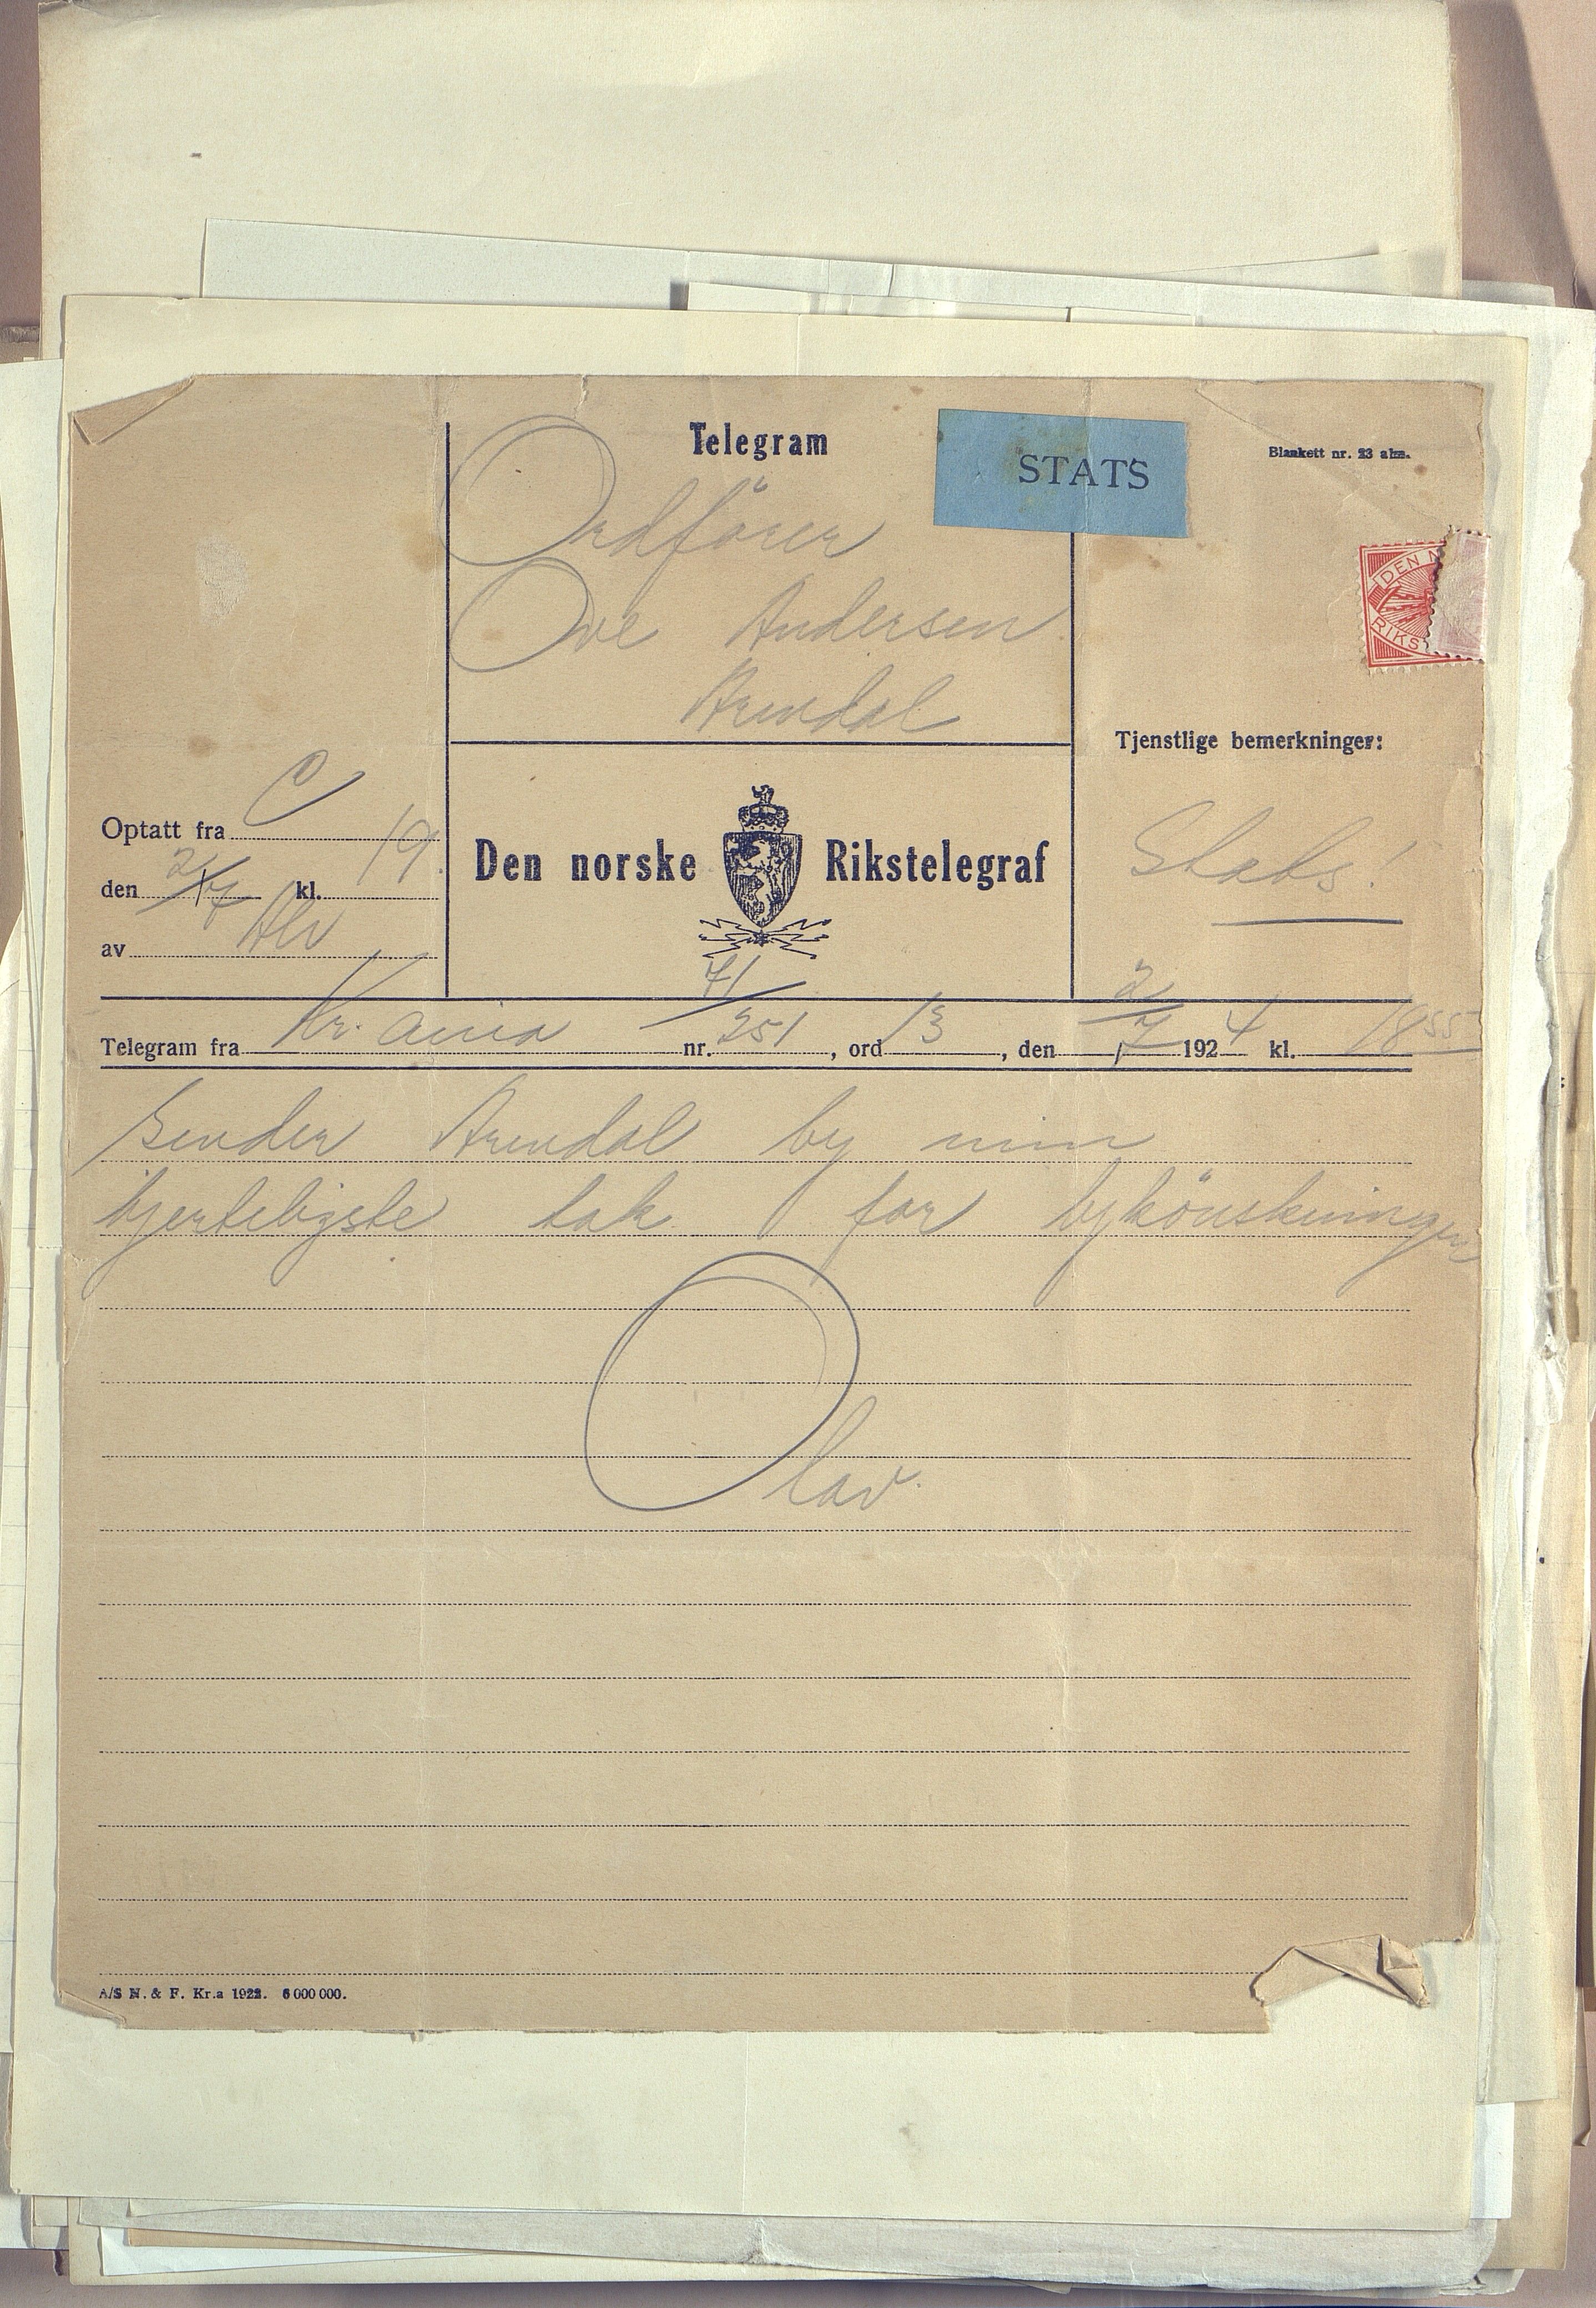 Telegram
STATS
Blankett nr. 23 abn.
Ordförer
Ove Andersen
Arendal
DEN N
RIKST
Tjenstlige bemerkninger:
Stats!
Optatt fra C
den 2/7 kl. 19
av
Den norske Rikstelegraf
Telegram fra Kr. ania nr. 71/251, ord 13, den 2/7 1924 kl. 18 55
Sender Arendal by min
hjerteligste tak for lykönskningen
Olav.
A/S N. & F. Kr.a 1922. 6 000 000.